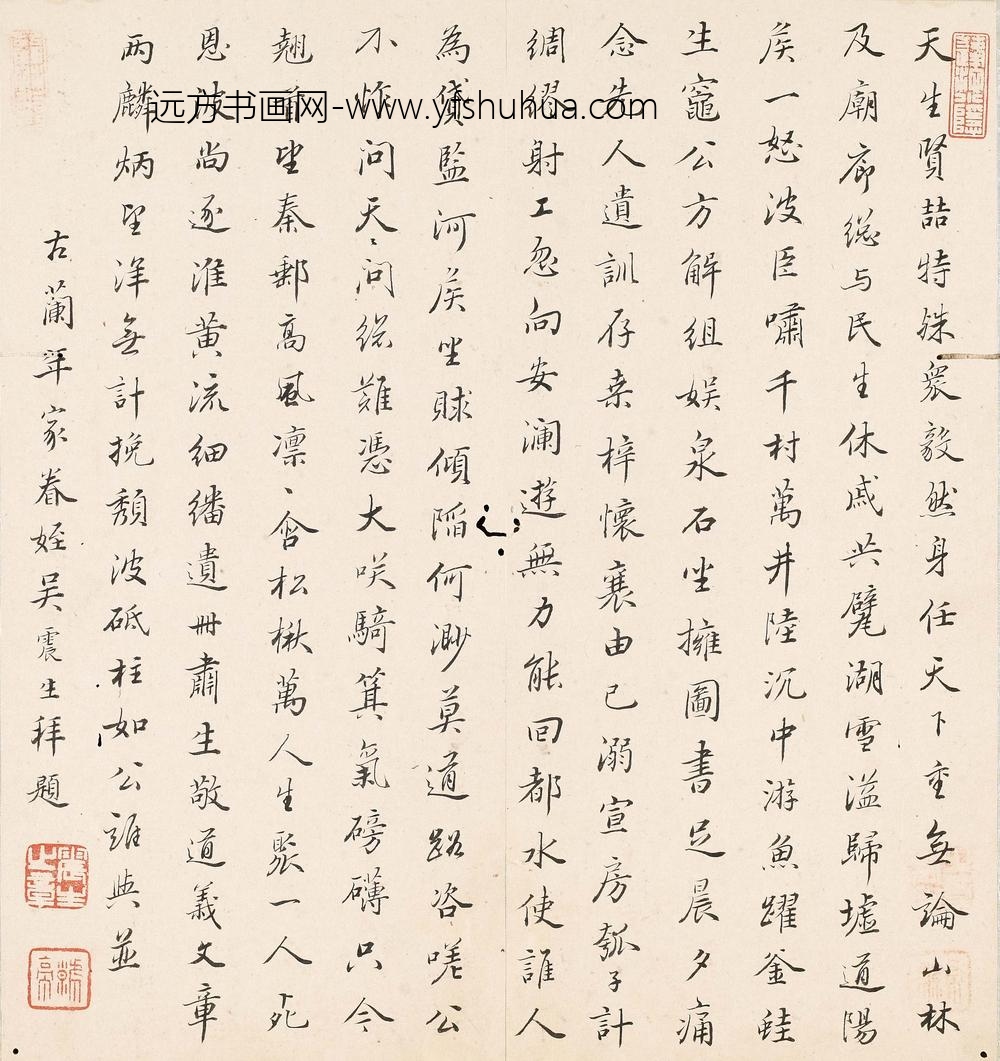 天生賢喆特殊衆毅然身任天下重無論山林
及廟廊緫与民生休戚共甓湖雪溢歸墟道陽
矦一怒波臣嘯千村萬井陸沉中游魚躍釜蛙
生竈公方解組娛泉石坐擁圖書足晨夕痛
念先人遺訓存桒梓懷襄由已溺宣房瓠子計
綢繆射工忽向安瀾遊無力能回都水使誰人
為貸監河矦坐賕傾陷何渺莫道谿咨嗟公
不怍問天天問緫難憑大咲騎箕氣磅礴只今
翹首望秦郵高風凛凛含松楸萬人生聚一人死
恩波尚逐淮黄流細繙遺冊肅生敬道義文章
两麟炳望洋無計挽頽波砥柱如公誰與並
古蘭年家眷姪吴震生拜題
远方书画网-www.yfshuhua.com
震生之章